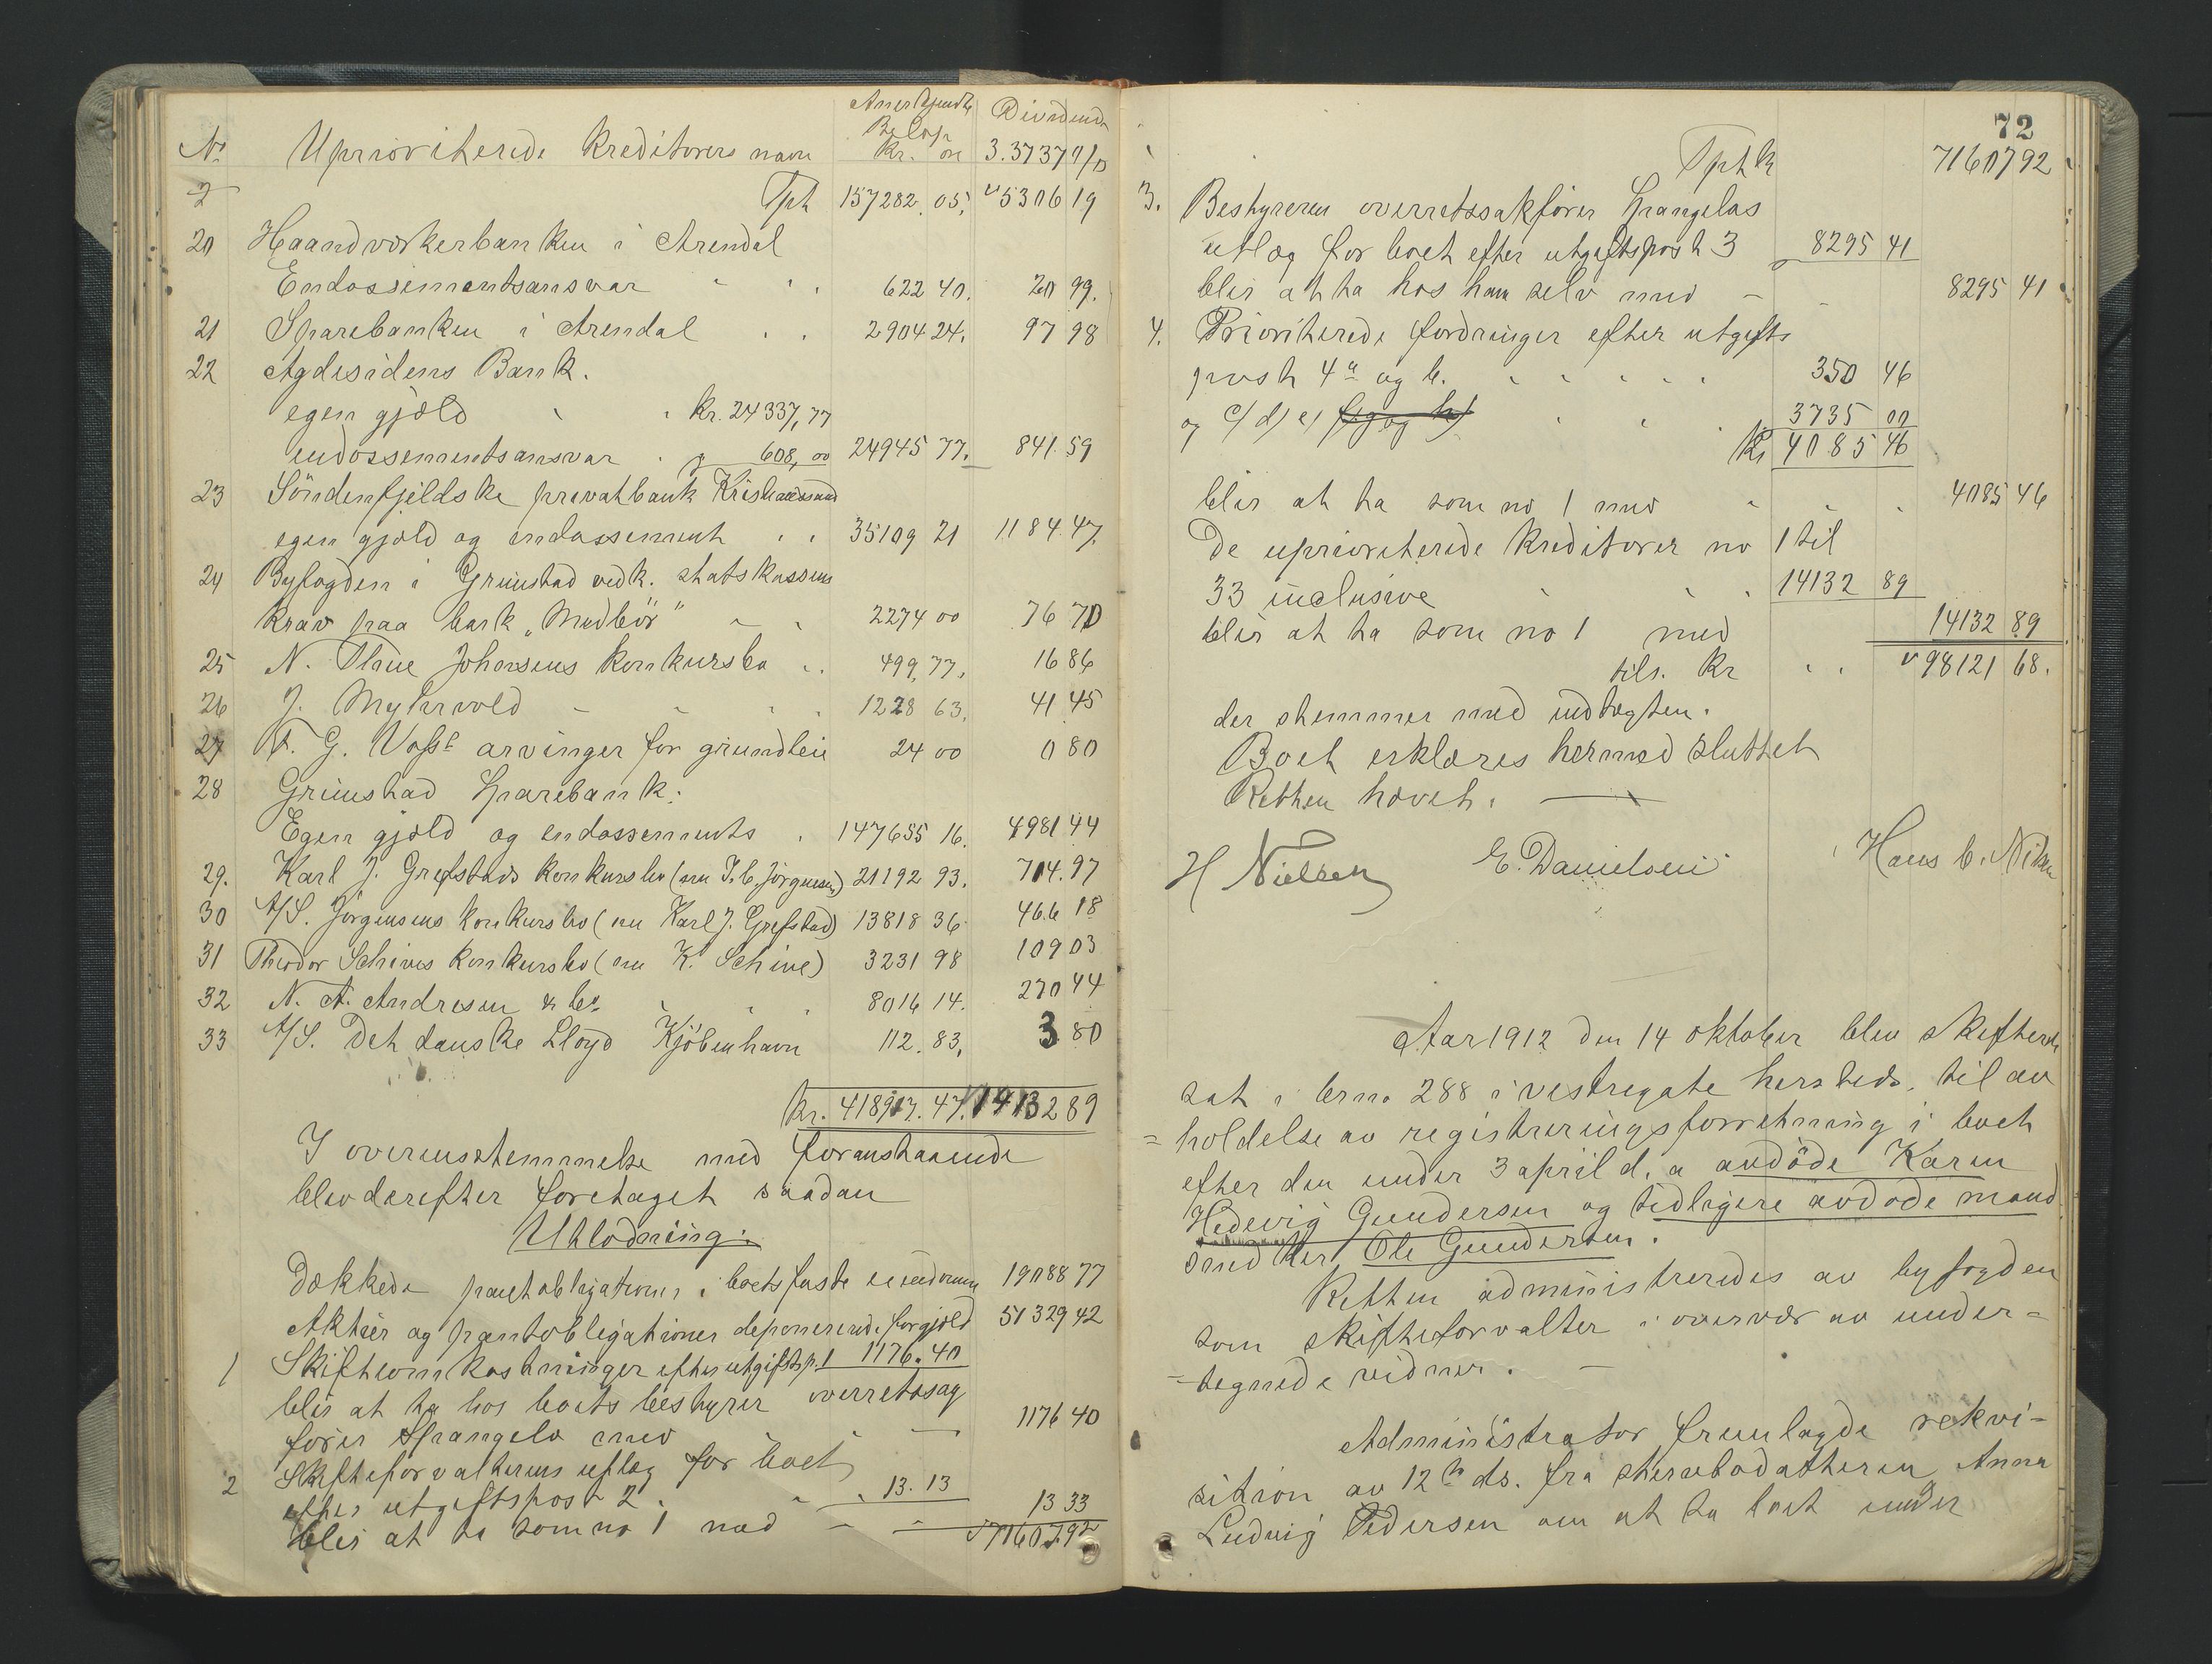 No Uprioriterede Kreditorers navn Anerkjendte Beløp Kr. øre Dividende 3.3737 %
Tpt 157282 05. 5306 19
20 Haandværkerbanken i Arendal
Endossementsansvar 622 40. 20 99.
21 Sparebanken i Arendal 2904 24. 97 98
22 Agdesidens Bank.
egen gjæld Kr. 24337,77
endossementsansvar 608,00 24945 77. 841 59
23 Söndenfjeldske privatbank Kristiansand
egen gjæld og endossement 35109 21 1184.47.
24 Byfogden i Grimstad vedk. statskassens
krav paa bark "Medbör" 2274 00 76 70
25 N. Thue Johnsens konkursbo 499,77. 16 86
26 J. Myhrvold 1228 63. 41 45
27 F. G. Voss' arvinger for grundleie 24 00 0 80
28 Grimstad Sparebank:
Egen gjæld og endossements 147655 16. 4981 44
29. Karl J. Grefstads konkursbo (nu J. C. Jörgensen) 21192 93. 714.97
30 A/S. Jörgensens konkursbo (nu Karl J. Grefstad) 13818 36. 466 18
31 Theodor Schives konkursbo (nu K. Schive) 3231 98 109 03
32 N. A. Andresen & Co. 8016 14. 270 44
33 A/S. Det danske Lloyd Kjöbenhavn 112.83. 3 80
Kr. 418917.47. 14132 89
I overensstemmelse med foranstaaende
blev derefter foretaget saadan
Utlodning:
Dækkede pantobligationer i boets faste eiendomme 19088 77
Aktier og pantobligationer deponerende for gjæld 51329 42
1 Skifteomkostninger efter utgiftsp. 1 1176.40
blir at ta hos boets bestyrer overretssag
fører Spangelo med 1176 40
2 Skifteforvalterens utlæg for boet
efter utgiftspost 2. 13.13
blir at ta som no 1 med 13 33
71607.92
72
Tpt kr 71607 92
3. Bestyreren overretssakfører Spangelos
utlæg for boet efter utgiftspost 3 8295 41
blir at ta hos ham selv med 8295 41
4. Prioriterede fordringer efter utgifts
post 4 a og b. 350 46
og c/ d/ e/ f/ g og h/ 3735 00
Kr 4085 46
blir at ta som no 1 med 4085 46
De uprioriterede kreditorer no 1 til
33 inclusive 14132 89
blir at ta som no 1 med 14132 89
tils. Kr 98121 68.
der stemmer med indtægten.
Boet erklæres hermed sluttet
Retten hævet.
H Nielsen E. Danielsen Hans C. Nilsen
Aar 1912 den 14 oktober blev skifteret
sat i br.no. 288 i vestregate hersteds, til av
=holdelse av registreringsforretning i boet
efter den under 3 april d. a avdöde Karen
Hedevig Gundersen og tidligere avdøde mand
Ole Gundersen.
Retten administreredes av byfogden
som skifteforvalter i overvær av under=
=tegnede vidner.
Administrator fremlagde rekvi-
sition av 12te ds. fra stervbodatteren Anna
Ludvig Pedersen om at ta boet under